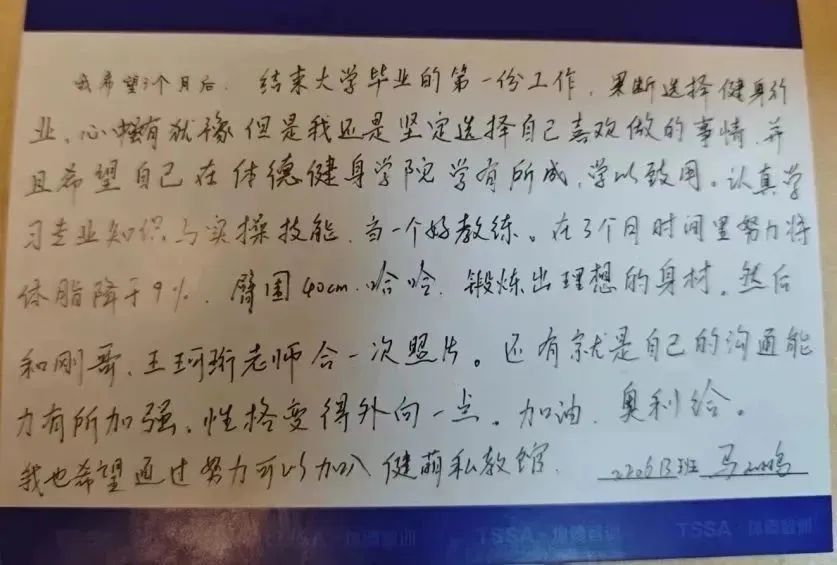 我希望3个月后. 结束大学毕业的第一份工作, 果断选择健身行
业、心中虽有犹豫但是我还是坚定选择自己喜欢做的事情.并
且希望自己在体德健身学院学有所成,学以致用。认真学
习专业知识与实操技能、当一个好教练。在3个月时间里努力将
体脂降于9%. 臂围40cm.哈哈. 锻炼出理想的身材. 然后
和刚哥、王珂珩老师合一次照片。还有就是自己的沟通能
力有所加强、性格变得外向一点. 加油. 奥利给。
我也希望通过努力可以加入健萌私教馆. 班 马
TSSA·体德培训 TSSA·体德培训